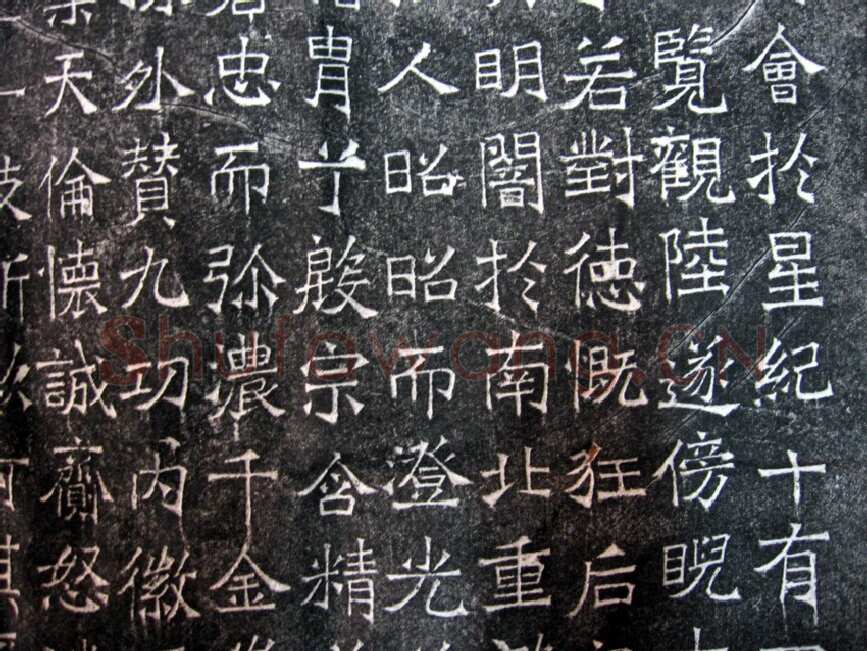 會於星紀十有
覽觀陸遂傍睨
若對徳慨狂后
明闇於南北重
人昭昭而澄光
胄子殷宗含精
忠而弥濃千金
外贊九功内徽
天倫懷誠齎怒
Shufawang.CN